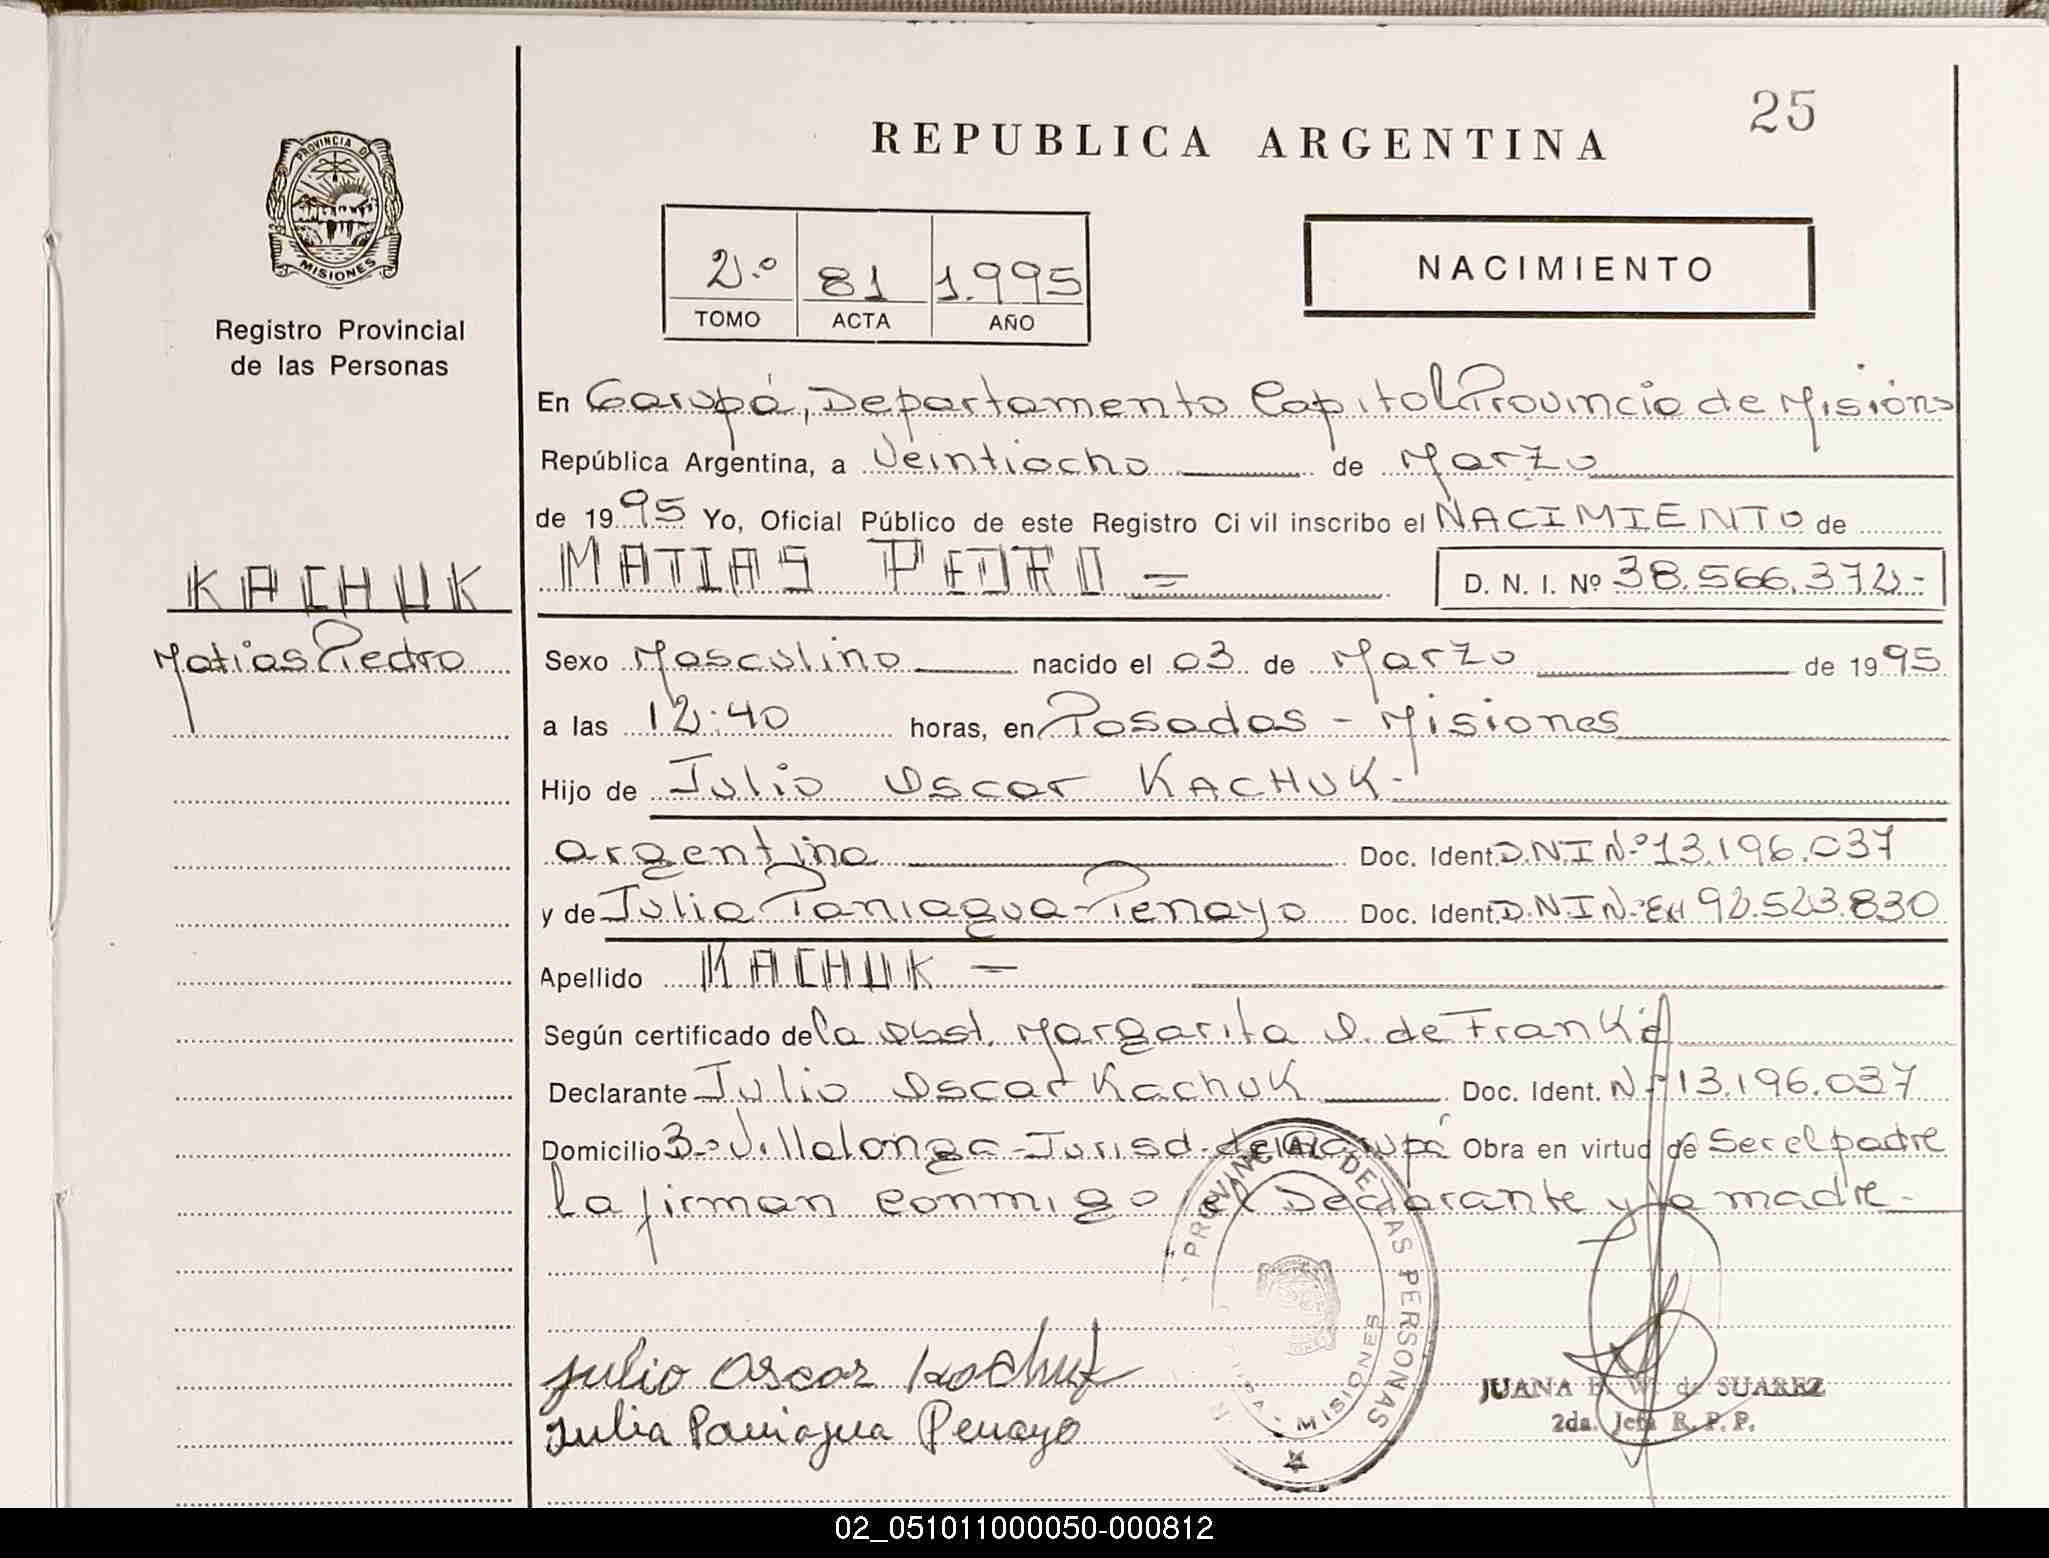 25
REPUBLICA ARGENTINA
PROVINCIA DE
MISIONES
Registro Provincial
de las Personas
2.º 81 1.995
TOMO ACTA AÑO
NACIMIENTO
En Garupá, Departamento Capital Provincia de Misiones
República Argentina, a Veintiocho de Marzo
de 1995 Yo, Oficial Público de este Registro Civil inscribo el NACIMIENTO de
KACHUK
MATIAS PEDRO =
D. N. I. Nº 38.566.372.-
Matias Pedro
Sexo Masculino nacido el 03 de Marzo de 1995
a las 12:40 horas, en Posadas - Misiones
Hijo de Julio Oscar KACHUK-
argentino Doc. Ident. D.N.I N.º 13.196.037
y de Julia Paniagua-Penayo Doc. Ident. D.N.I N.º EXT 92.523.830
Apellido KACHUK =
Según certificado de la Obst. Margarita O. de Franke
Declarante Julio Oscar Kachuk Doc. Ident. Nº 13.196.037
Domicilio Bº Villalonga - Jurisd. de Garupá Obra en virtud de Ser el padre
La firman conmigo el Declarante y la madre.-
PROVINCIAL DE LAS PERSONAS
MISIONES
Julio Oscar Kachuk
Julia Paniagua Penayo
JUANA B. W. de SUAREZ
2da. Jefa R. P. P.
02_051011000050-000812